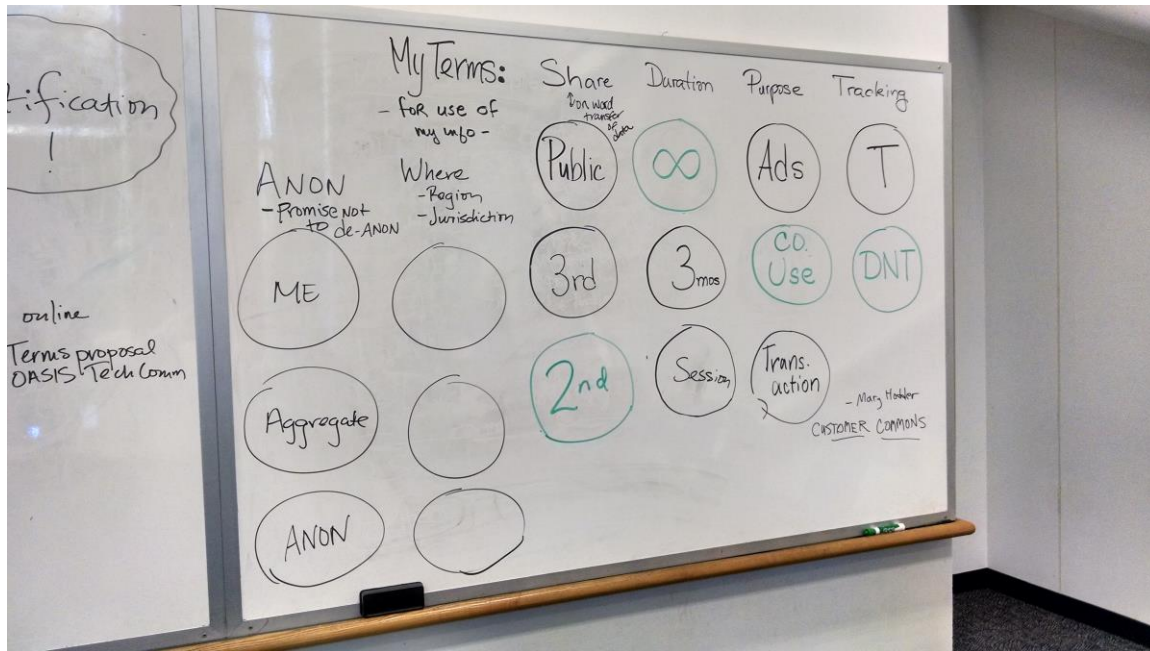 tification
!
online
Terms proposal
OASIS Tech Comm
My Terms:
- for use of
my info -
ANON
- Promise not
to de-ANON
ME
Aggregate
ANON
Where
- Region
- Jurisdiction
Share
↑ on word
transfer
of data
Public
3rd
2nd
Duration
∞
3 mos
Session
Purpose
Ads
CO.
Use
Trans.
action
Tracking
T
DNT
- Mary Hodder
CUSTOMER COMMONS